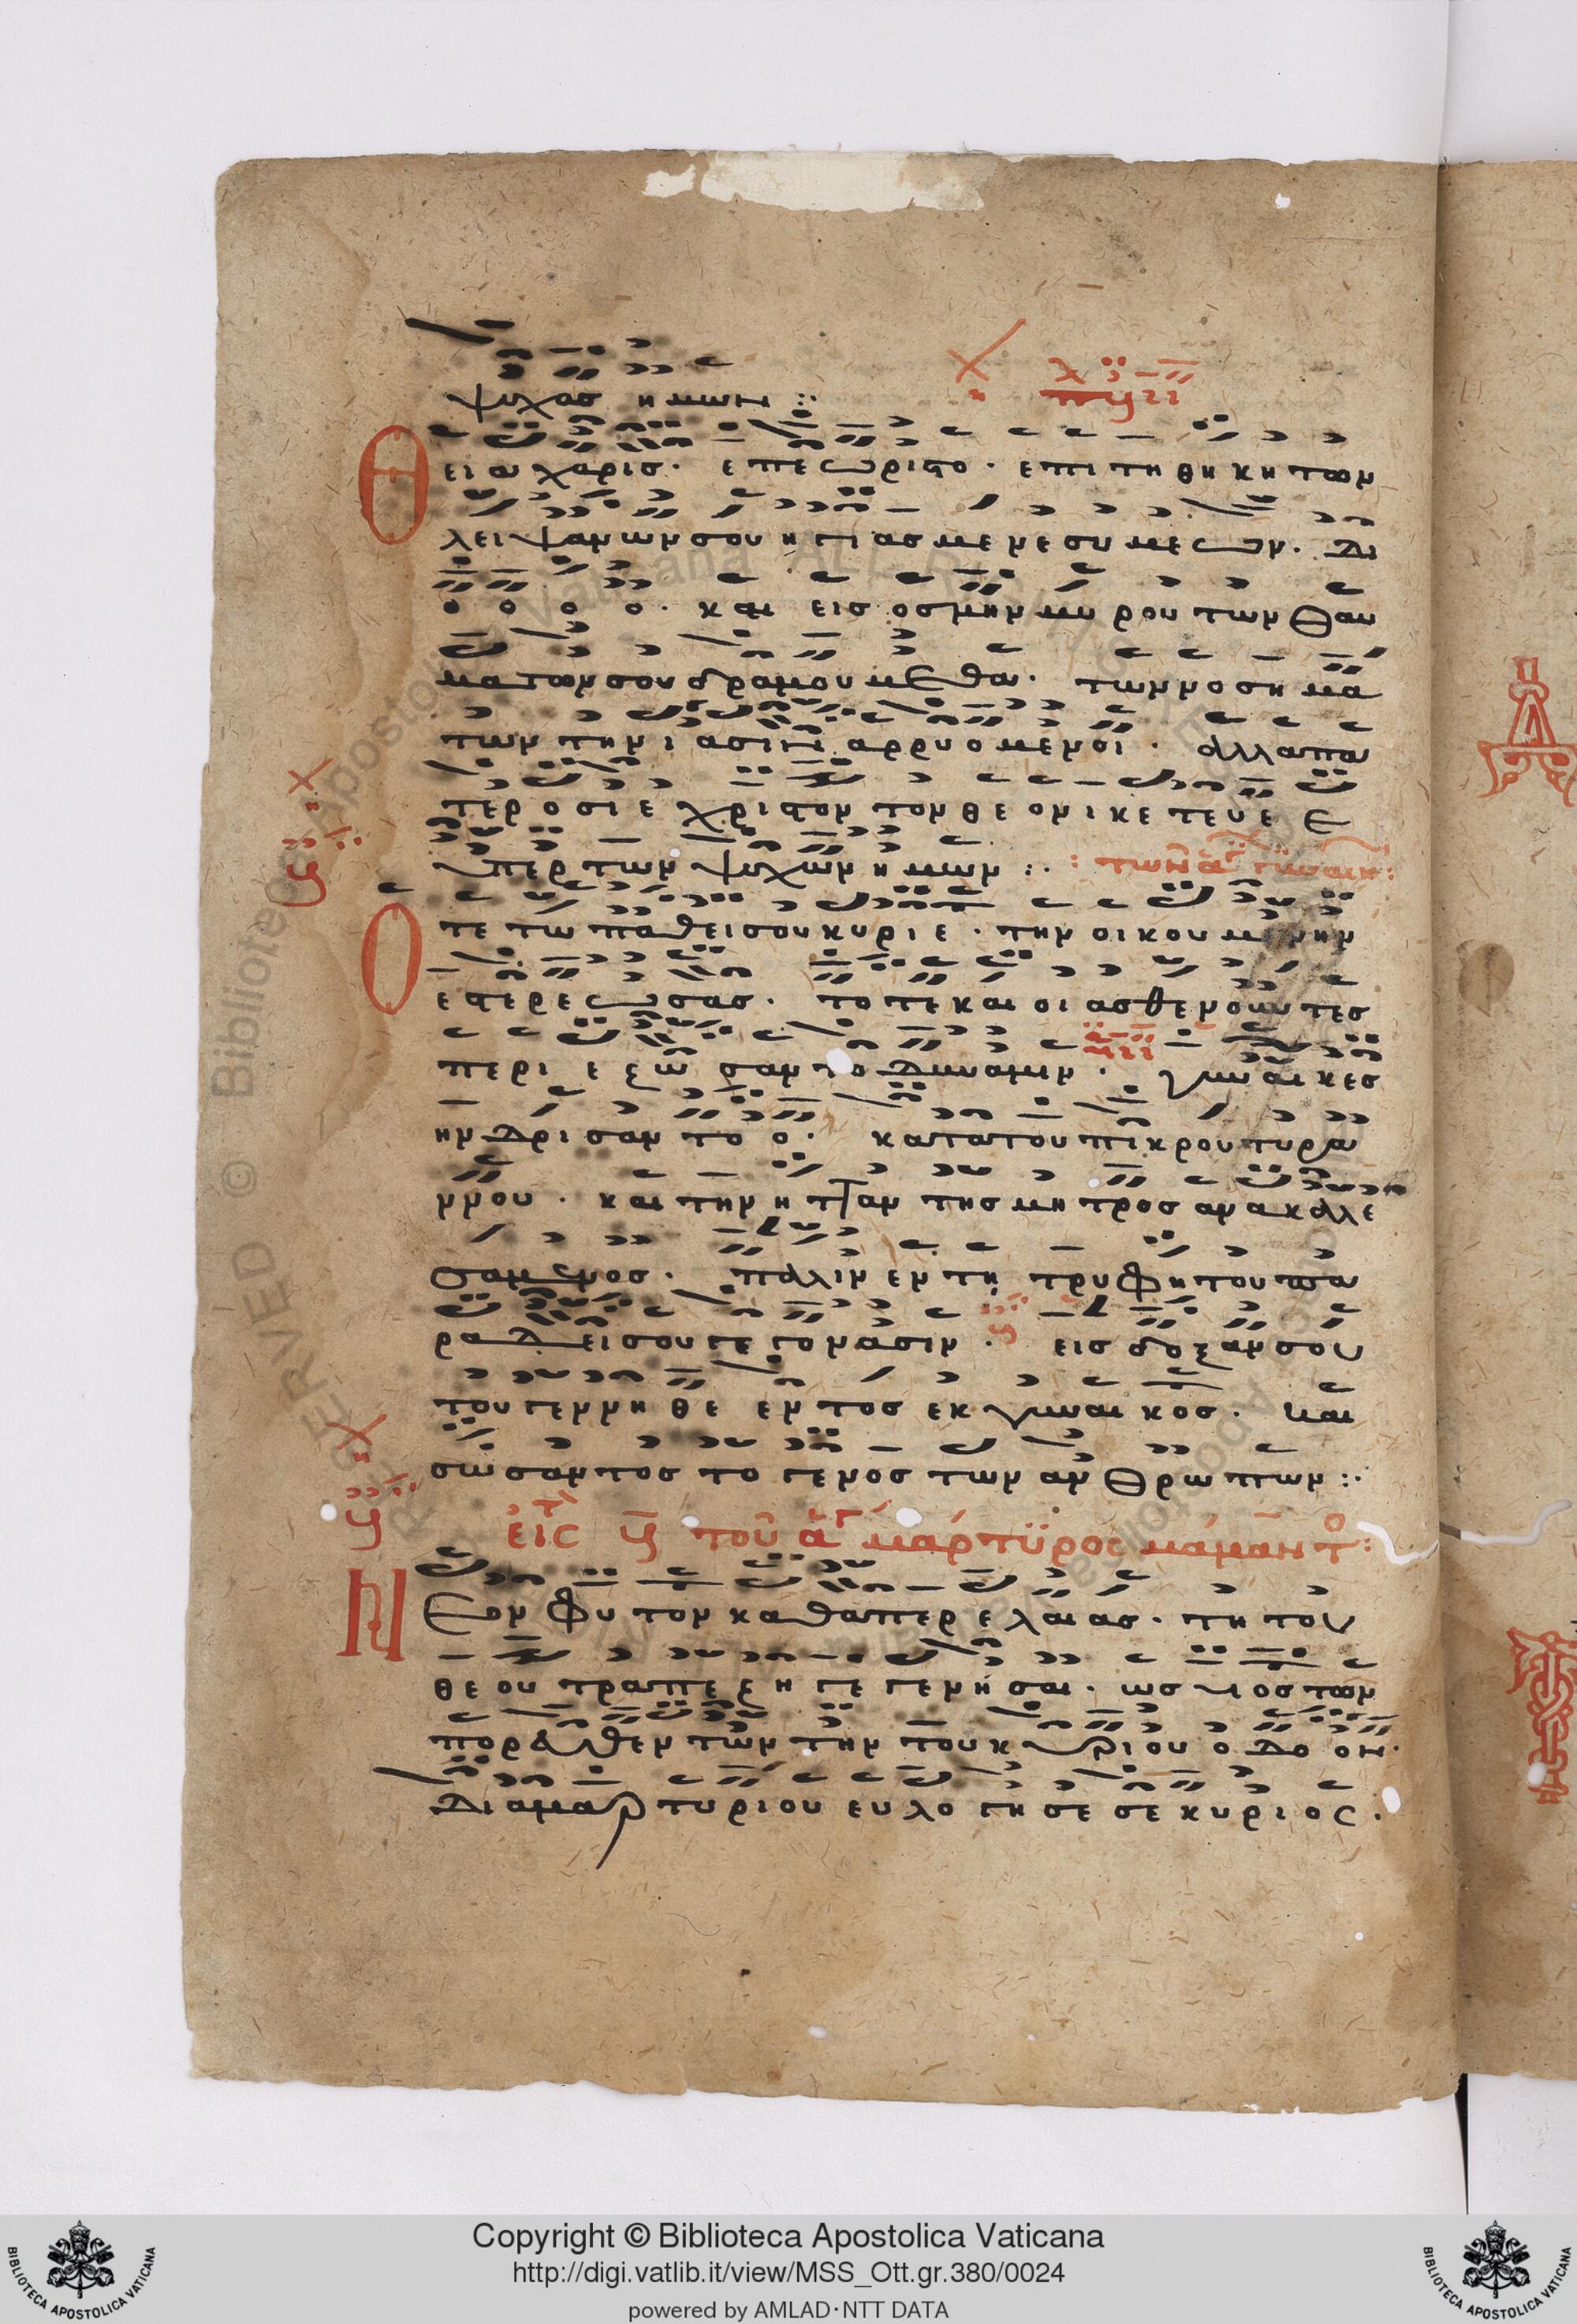 ψυχας ημων :·
Θεια χαρισ· επεωριστο· επι τη θηκη των
λειψανων σου ητιασμενε συμεων· δι
ο ο ο ο· και εισ οσμην μυρου των θαυ
ματων σου δραμουμεθα· των νοσημα
των την ιασιν αρρυομενοι· αλλα πα
τερ οσιε χριστον τον θεον ικετευε ε
υπερ των ψυχων ημων :· : των αγ γυναικ :
Οτε τω παθει σου κυριε· την οικουμενην
εστερεωσας· τοτε και οι ασθενουντες
περιεζωσαντο δυναμιν· γυναικες
ηνδρισαντο ο· κατα του πικρου τυρα
ννου· και την ητταν της μητρος ανακαλε
σαμενος· παλιν εν τη τρυφη του πα
ραδεισου γεγονασιν· εις δοξαν σου
του γεννηθεντος εκ γυναικος· και
σωσαντος το γενος των ανθρωπων :·
εις του αγ μαρτυρος μαμαντ :
Νεον φυτον καθαπερ ελαιας· τη του
θεου τραπεζη γεγενησαι· ως υιος των
πορευθεντων την του κυριου οδο ον·
δια μαρτυριου ευλογησε σε κυριος·
Copyright © Biblioteca Apostolica Vaticana
http://digi.vatlib.it/view/MSS_Ott.gr.380/0024
powered by AMLAD·NTT DATA
BIBLIOTECA APOSTOLICA VATICANA
BIBLIOTECA APOSTOLICA VATICANA